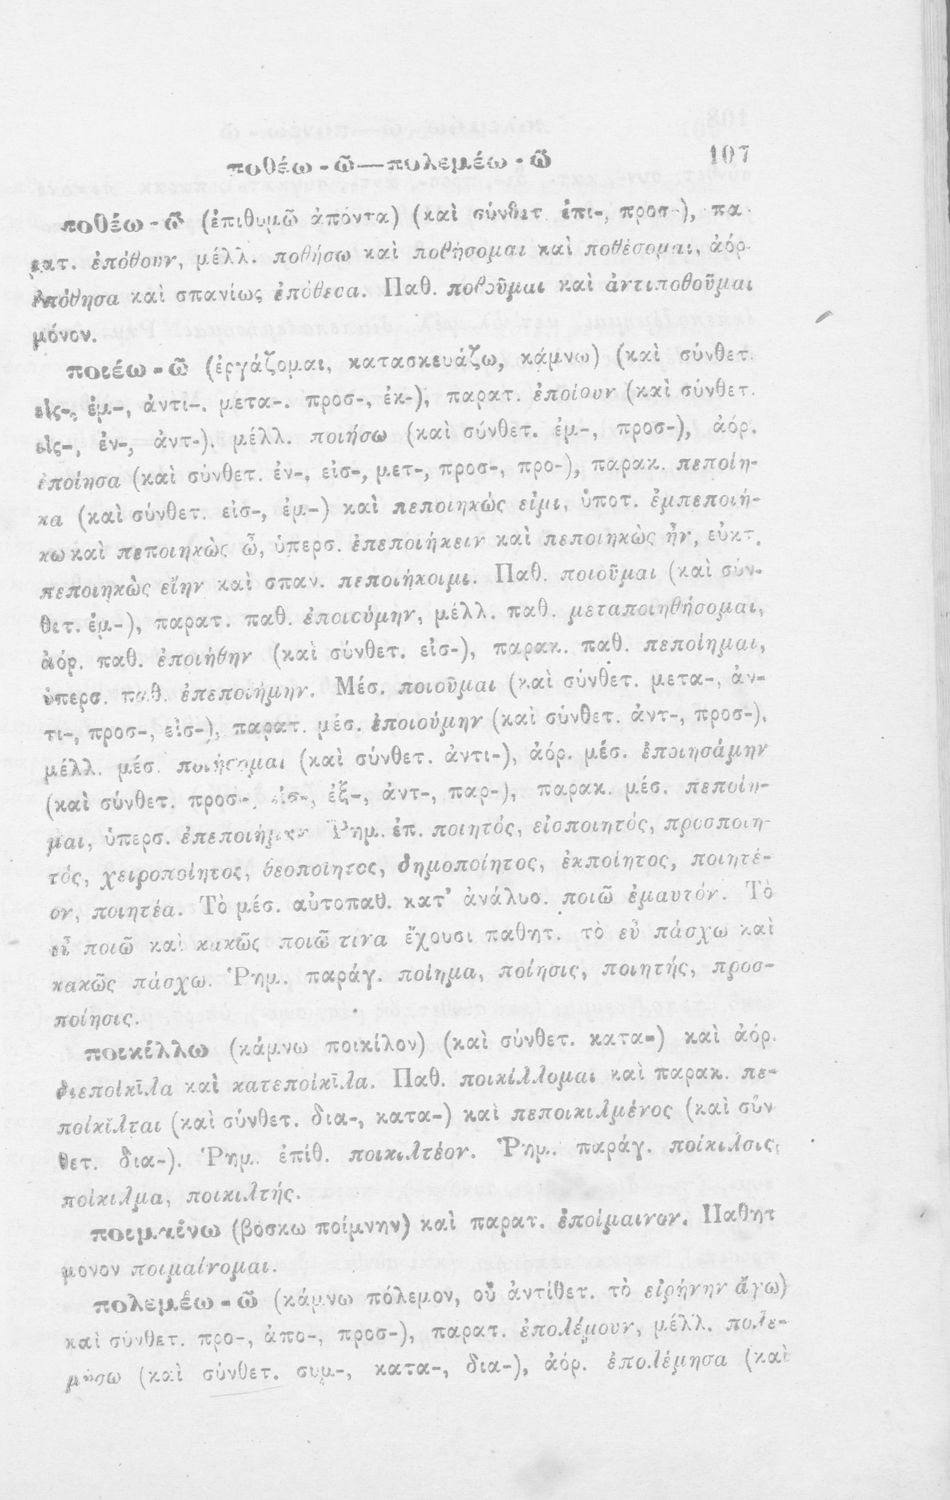 ποθέω - ῶ—πολεμέω - ῶ 107
ποθέω - ῶ (ἐπιθυμῶ ἀπόντα) (καὶ σύνθετ. ἐπι-, προσ-), πα-
ρατ. ἐπόθουν, μέλλ. ποθήσω καὶ ποθήσομαι καὶ ποθέσομαι, ἀόρ.
ἐπόθησα καὶ σπανίως ἐπόθεσα. Παθ. ποθοῦμαι καὶ ἀντιποθοῦμαι
μόνον.
ποιέω - ῶ (ἐργάζομαι, κατασκευάζω, κάμνω) (καὶ σύνθετ.
εἰς-, ἐμ-, ἀντι-, μετα-, προσ-, ἐκ-), παρατ. ἐποίουν (καὶ σύνθετ.
εἰς-, ἐν-, ἀντ-), μέλλ. ποιήσω (καὶ σύνθετ. ἐμ-, προσ-), ἀόρ.
ἐποίησα (καὶ σύνθετ. ἐν-, εἰσ-, μετ-, προσ-, προ-), παρακ. πεποίη-
κα (καὶ σύνθετ. εἰσ-, ἐμ-) καὶ πεποιηκώς εἰμι, ὑποτ. ἐμπεποιή-
κω καὶ πεποιηκὼς ὦ, ὑπερσ. ἐπεποιήκειν καὶ πεποιηκὼς ἦν, εὐκτ.
πεποιηκὼς εἴην καὶ σπαν. πεποιήκοιμι. Παθ. ποιοῦμαι (καὶ σύν-
θετ. ἐμ-), παρατ. παθ. ἐποιούμην, μέλλ. παθ. μεταποιηθήσομαι,
ἀόρ. παθ. ἐποιήθην (καὶ σύνθετ. εἰσ-), παρακ. παθ. πεποίημαι,
ὑπερσ. παθ. ἐπεποιήμην. Μέσ. ποιοῦμαι (καὶ σύνθετ. μετα-, ἀν-
τι-, προσ-, εἰσ-), παρατ. μέσ. ἐποιούμην (καὶ σύνθετ. ἀντ-, προσ-),
μέλλ. μέσ. ποιήσομαι (καὶ σύνθετ. ἀντι-), ἀόρ. μέσ. ἐποιησάμην
(καὶ σύνθετ. προσ-, εἰσ-, ἐξ-, ἀντ-, παρ-), παρακ. μέσ. πεποίη-
μαι, ὑπερσ. ἐπεποιήμην Ῥημ. ἐπ. ποιητός, εἰσποιητός, προσποιη-
τός, χειροποίητος, θεοποίητος, δημοποίητος, ἐκποίητος, ποιητέ-
ον, ποιητέα. Τὸ μέσ. αὐτοπαθ. κατ’ ἀνάλυσ. ποιῶ ἐμαυτόν. Τὸ
εὖ ποιῶ καὶ κακῶς ποιῶ τινα ἔχουσι παθητ. τὸ εὖ πάσχω καὶ
κακῶς πάσχω. Ῥημ. παράγ. ποίημα, ποίησις, ποιητής, προσ-
ποίησις.
ποικίλλω (κάμνω ποικίλον) (καὶ σύνθετ. κατα-) καὶ ἀόρ.
διεποίκῑλα καὶ κατεποίκῑλα. Παθ. ποικίλλομαι καὶ παρακ. πε-
ποίκῐλται (καὶ σύνθετ. δια-, κατα-) καὶ πεποικιλμένος (καὶ σύν
θετ. δια-). Ῥημ. ἐπίθ. ποικιλτέον. Ῥημ. παράγ. ποίκιλσις,
ποίκιλμα, ποικιλτής.
ποιμαίνω (βόσκω ποίμνην) καὶ παρατ. ἐποίμαινον. Παθητ
μονον ποιμαίνομαι.
πολεμέω - ῶ (κάμνω πόλεμον, οὗ ἀντίθετ. τὸ εἰρήνην ἄγω)
καὶ σύνθετ. προ-, ἀπο-, προσ-), παρατ. ἐπολέμουν, μέλλ. πολε-
μήσω (καὶ σύνθετ. συμ-, κατα-, δια-), ἀόρ. ἐπολέμησα (καὶ